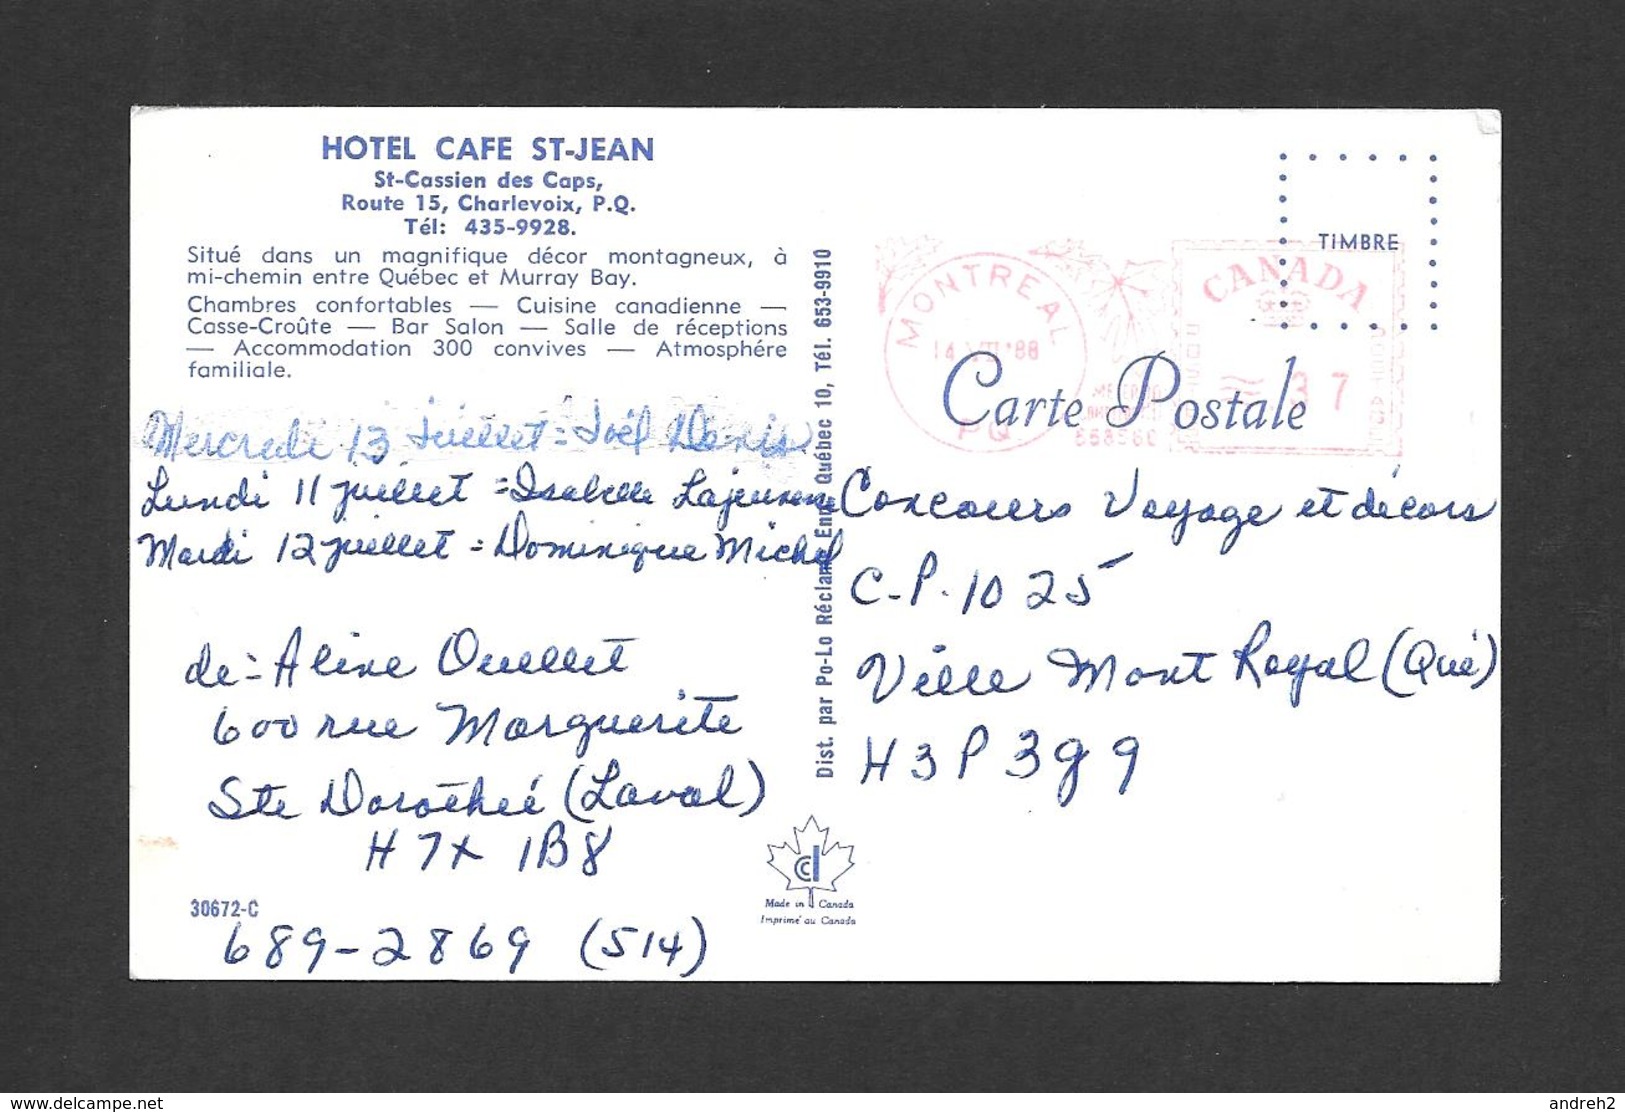 HOTEL CAFE ST-JEAN
St-Cassien des Caps,
Route 15, Charlevoix, P.Q.
Tél: 435-9928.
Situé dans un magnifique décor montagneux, à
mi-chemin entre Québec et Murray Bay.
Chambres confortables — Cuisine canadienne —
Casse-Croûte — Bar Salon — Salle de réceptions
— Accommodation 300 convives — Atmosphére
familiale.
Mercredi 13 juillet = Joël Denis
Lundi 11 juillet = Isabelle Lajeunesse
Mardi 12 juillet = Dominique Michel
de = Aline Ouellet
600 rue Marguerite
Ste Dorothée (Laval)
H7X 1B8
30672-C
689-2869 (514)
Dist. par Po-Lo Réclam Enr. Québec 10, Tél. 653-9910
Made in Canada
Imprimé au Canada
TIMBRE
MONTREAL
14 VII '88
PQ
CANADA
37
Carte Postale
Concours Voyage et décors
C.P. 1025
Ville Mont Royal (Qué)
H3P 3G9
www.delcampe.net
andreh2